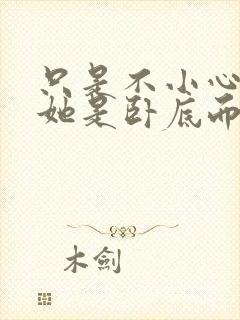 只是不小心
她是卧底而
木劍